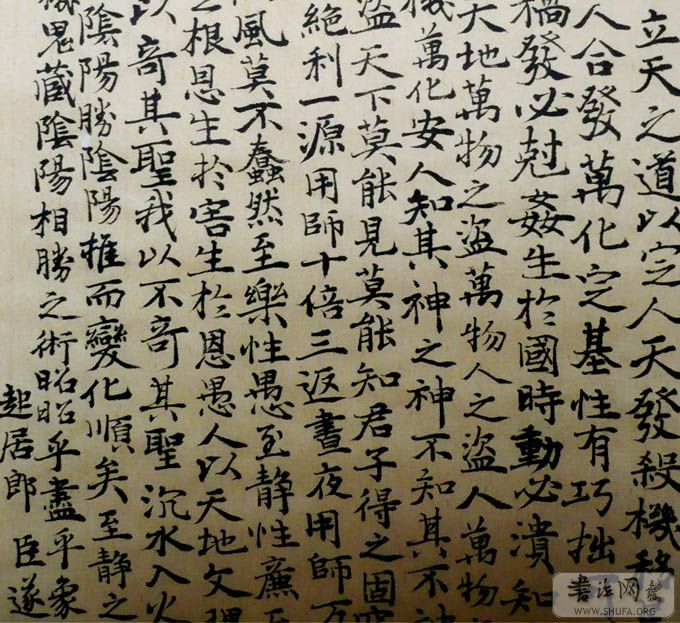 立天之道以定人天發殺機移
人合發萬化定基性有巧拙
禍發必尅姦生於國時動必潰知
天地萬物之盜萬物人之盜人萬物
機萬化安人知其神之神不知其不神
盜天下莫能見莫能知君子得之固
絕利一源用師十倍三返晝夜用師万
風莫不蠢然至樂性愚至靜性廉至
之根恩生於害生於恩愚人以天地文理
以奇其聖我以不奇其聖沉水入火
陰陽勝陰陽推而變化順矣至靜之
機鬼藏陰陽相勝之術昭昭乎盡乎象
起居郎 臣遂
書法网
WWW.SHUFA.ORG